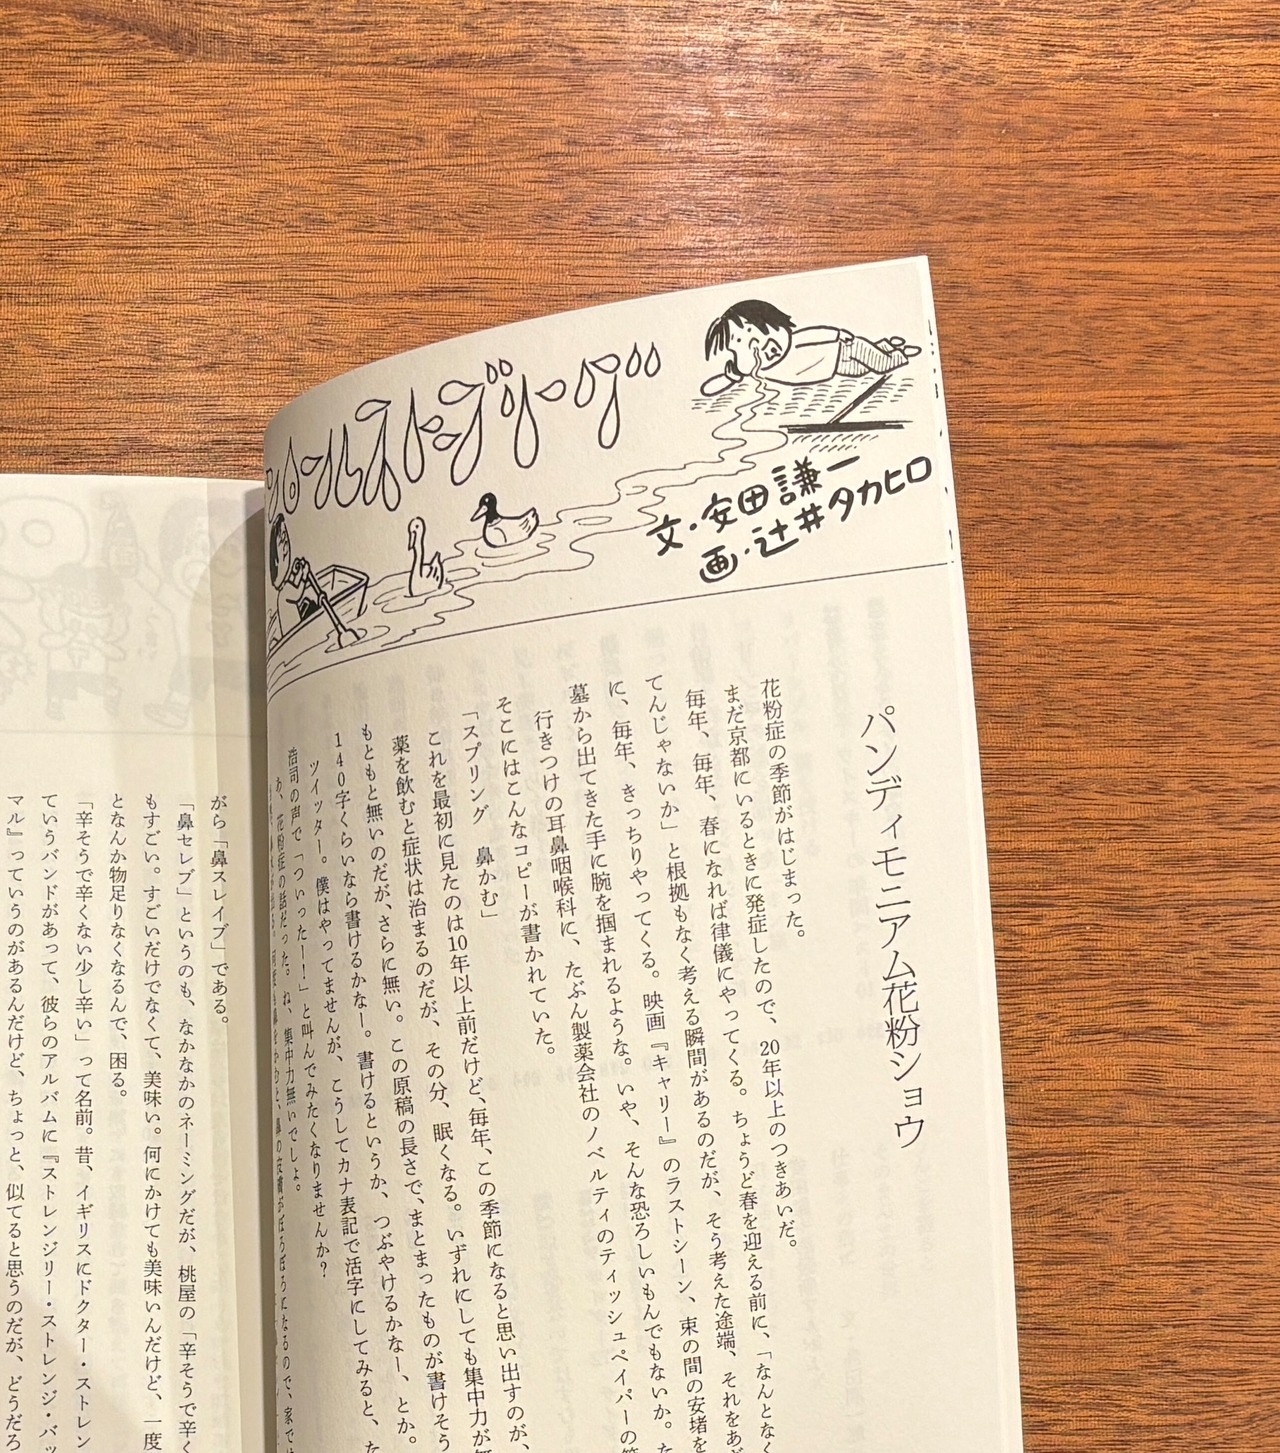 ロールストジリーグ
文・安田謙一
画・辻井タカヒロ
パンディモニアム花粉ショウ
花粉症の季節がはじまった。
まだ京都にいるときに発症したので、20年以上のつきあいだ。
毎年、毎年、春になれば律儀にやってくる。ちょうど春を迎える前に、「なんとなく
てんじゃないか」と根拠もなく考える瞬間があるのだが、そう考えた途端、それをあ
に、毎年、きっちりやってくる。映画『キャリー』のラストシーン、束の間の安堵を
墓から出てきた手に腕を掴まれるような。いや、そんな恐ろしいもんでもないか。た
行きつけの耳鼻咽喉科に、たぶん製薬会社のノベルティのティッシュペイパーの箱
そこにはこんなコピーが書かれていた。
「スプリング 鼻かむ」
これを最初に見たのは10年以上前だけど、毎年、この季節になると思い出すのが、
薬を飲むと症状は治まるのだが、その分、眠くなる。いずれにしても集中力が無
もともと無いのだが、さらに無い。この原稿の長さで、まとまったものが書けそう
140字くらいなら書けるかなー。書けるというか、つぶやけるかなー、とか。
ツイッター。僕はやってませんが、こうしてカナ表記で活字にしてみると、た
浩司の声で「ついったー！」と叫んでみたくなりませんか？
あ、花粉症の話だった。ね、集中力無いでしょ。
がら「鼻スレイブ」である。
「鼻セレブ」というのも、なかなかのネーミングだが、桃屋の「辛そうで辛く
もすごい。すごいだけでなくて、美味い。何にかけても美味いんだけど、一度
となんか物足りなくなるんで、困る。
「辛そうで辛くない少し辛い」って名前。昔、イギリスにドクター・ストレン
ていうバンドがあって、彼らのアルバムに『ストレンジリー・ストレンジ・バッ
マル』っていうのがあるんだけど、ちょっと、似てると思うのだが、どうだろ